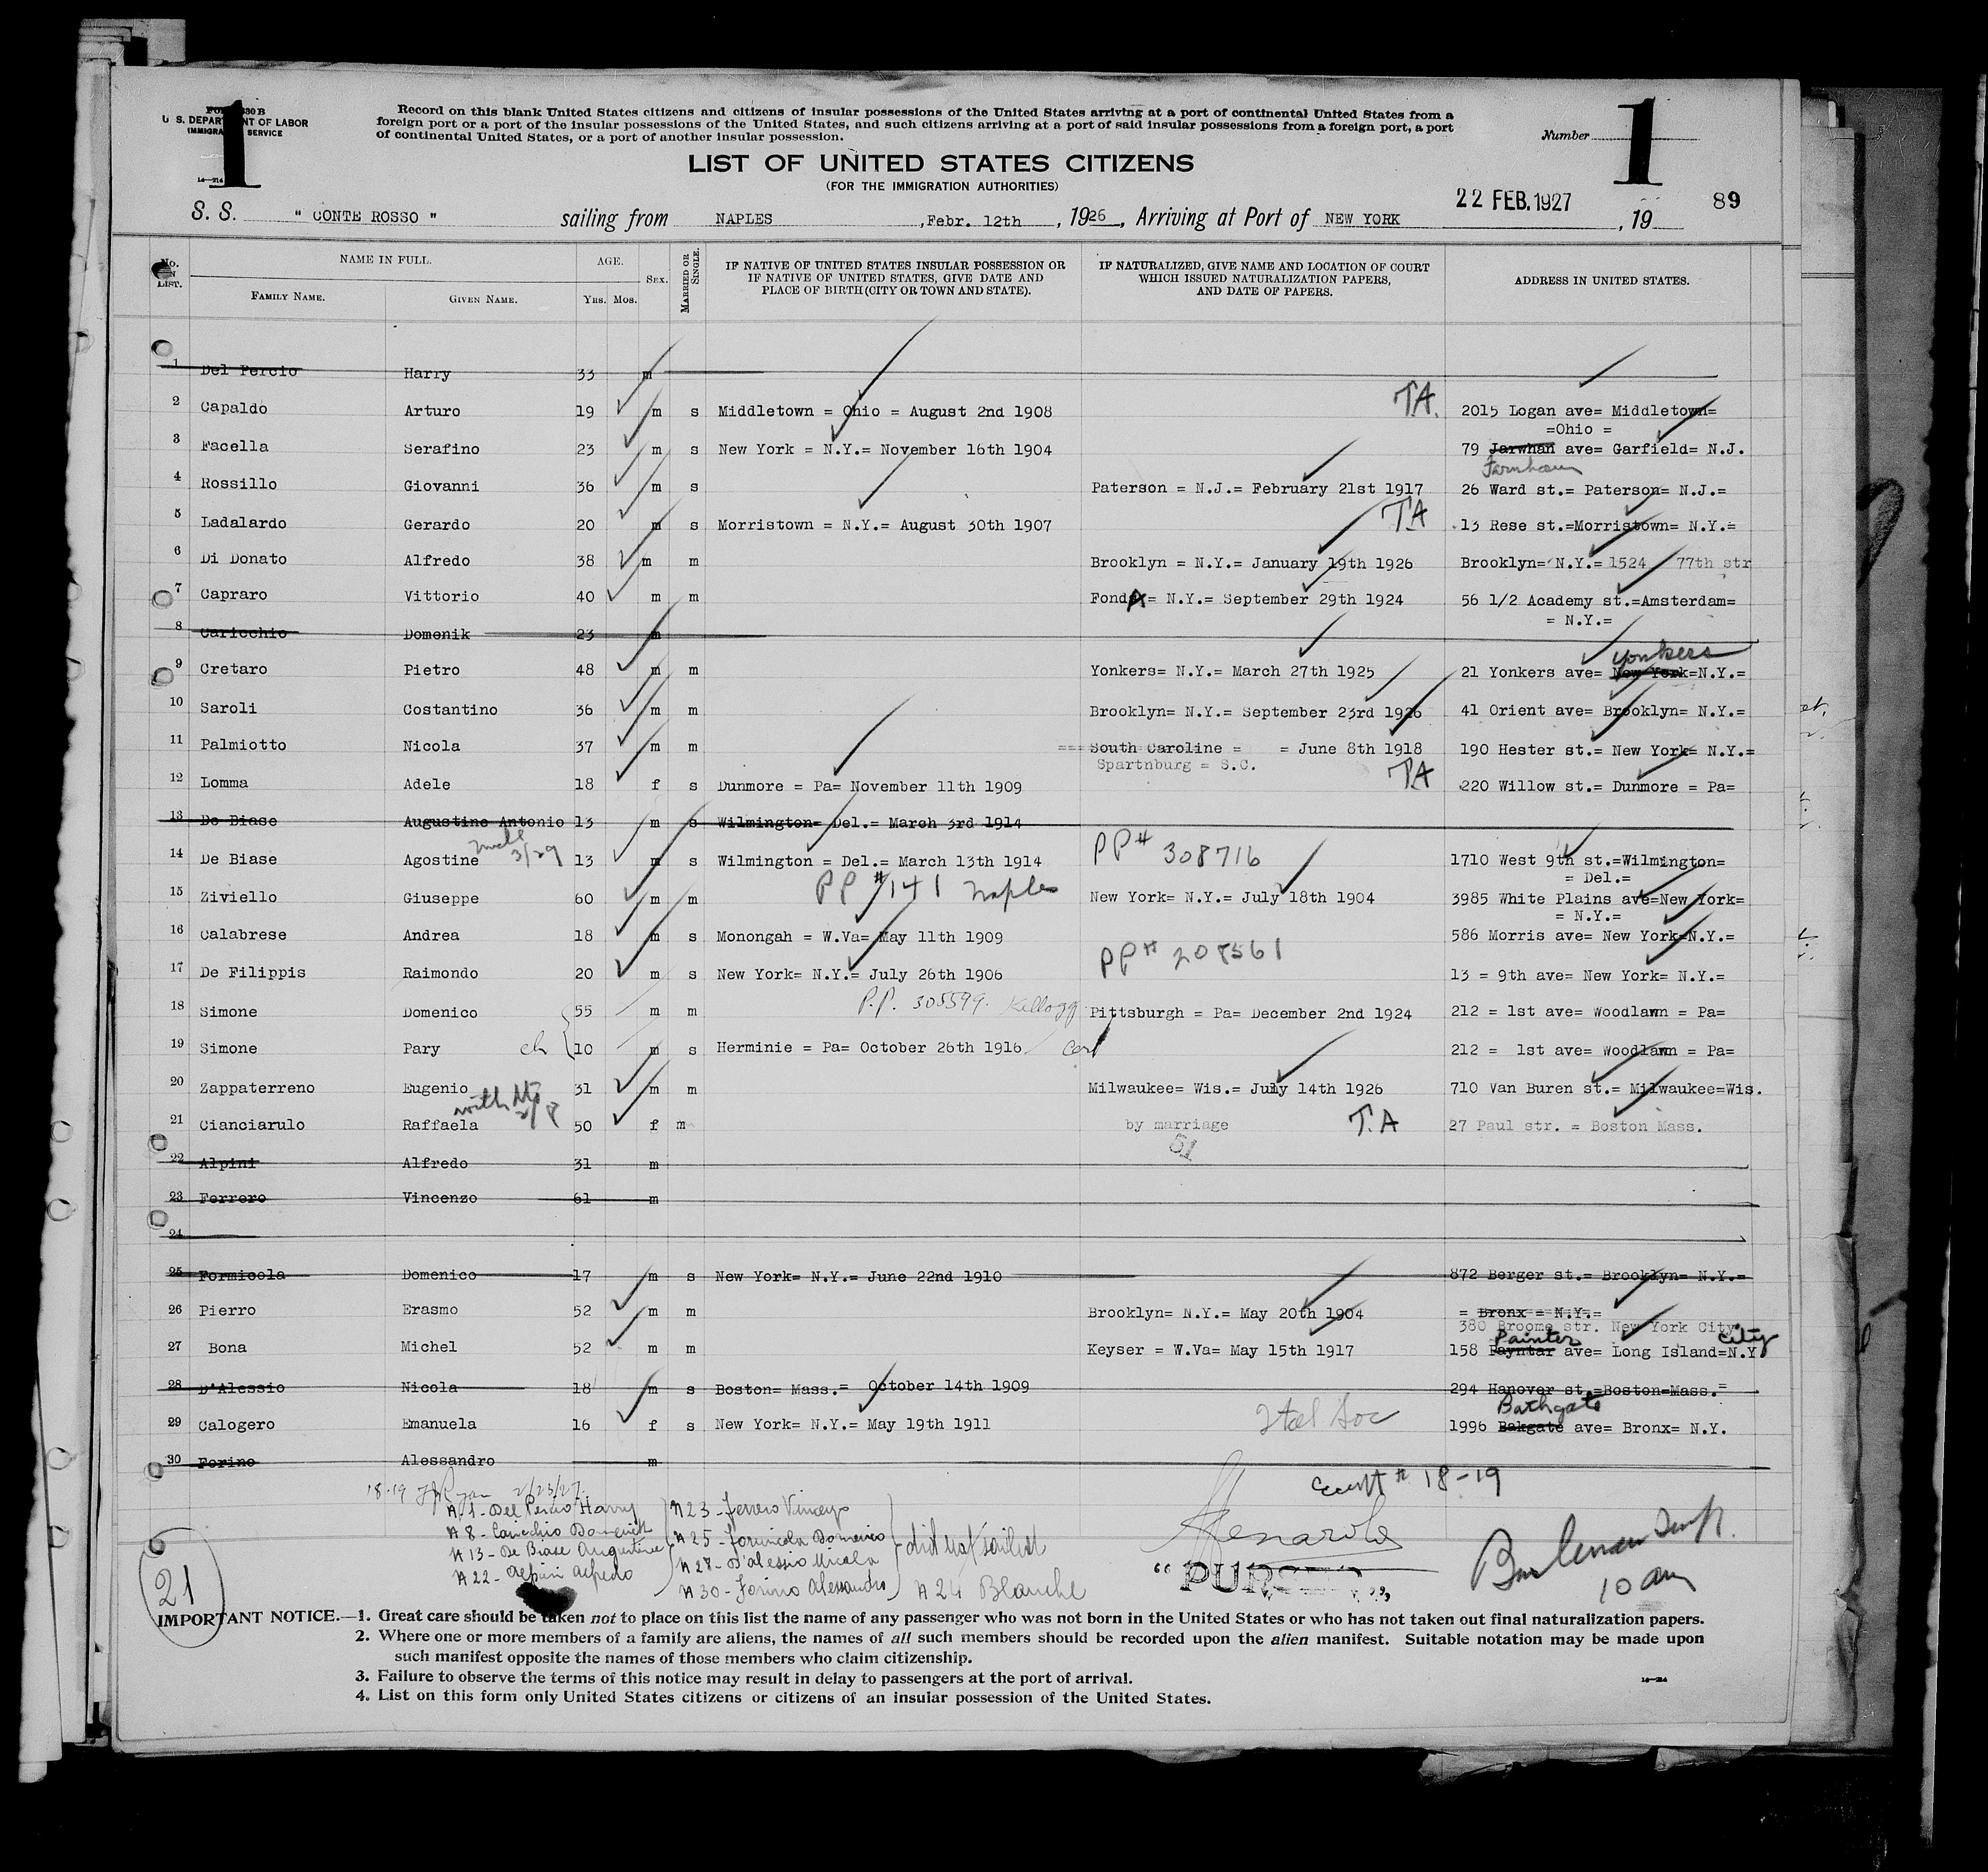 1
FORM 630 B
U. S. DEPARTMENT OF LABOR
IMMIGRATION SERVICE
14—214
Record on this blank United States citizens and citizens of insular possessions of the United States arriving at a port of continental United States from a
foreign port or a port of the insular possessions of the United States, and such citizens arriving at a port of said insular possessions from a foreign port, a port
of continental United States, or a port of another insular possession.
Number
1
LIST OF UNITED STATES CITIZENS
(FOR THE IMMIGRATION AUTHORITIES)
S. S. " CONTE ROSSO " sailing from NAPLES ,Febr. 12th , 1926 , Arriving at Port of NEW YORK 22 FEB. 1927 , 19 89
No. ON LIST. NAME IN FULL. AGE. SEX. MARRIED OR SINGLE. IF NATIVE OF UNITED STATES INSULAR POSSESSION OR IF NATIVE OF UNITED STATES, GIVE DATE AND PLACE OF BIRTH (CITY OR TOWN AND STATE). IF NATURALIZED, GIVE NAME AND LOCATION OF COURT WHICH ISSUED NATURALIZATION PAPERS, AND DATE OF PAPERS. ADDRESS IN UNITED STATES.
FAMILY NAME. GIVEN NAME. YRS. MOS.
1 Del Percio Harry 33 m
2 Capaldo Arturo 19 m s Middletown = Ohio = August 2nd 1908 TA. 2015 Logan ave= Middletown=
=Ohio =
3 Facella Serafino 23 m s New York = N.Y.= November 16th 1904 79 Jarwhan ave= Garfield= N.J.
Farnham
4 Rossillo Giovanni 36 m s Paterson = N.J.= February 21st 1917 26 Ward st.= Paterson= N.J.=
5 Ladalardo Gerardo 20 m s Morristown = N.Y.= August 30th 1907 TA 13 Rese st.=Morristown= N.Y.=
6 Di Donato Alfredo 38 m m Brooklyn = N.Y.= January 19th 1926 Brooklyn= N.Y.= 1524 77th str
7 Capraro Vittorio 40 m m Fonda= N.Y.= September 29th 1924 56 1/2 Academy st.=Amsterdam=
= N.Y.=
8 Caricchio Domenik 23 m
Yonkers
9 Cretaro Pietro 48 m m Yonkers= N.Y.= March 27th 1925 21 Yonkers ave= New York=N.Y.=
10 Saroli Costantino 36 m m Brooklyn= N.Y.= September 23rd 1926 41 Orient ave= Brooklyn= N.Y.=
11 Palmiotto Nicola 37 m m South Caroline = = June 8th 1918 190 Hester st.= New York= N.Y.=
Spartnburg = S.C.
12 Lomma Adele 18 f s Dunmore = Pa= November 11th 1909 TA 220 Willow st.= Dunmore = Pa=
13 De Biase Augustine Antonio 13 m s Wilmington= Del.= March 3rd 1914
3/29
14 De Biase Agostine 13 m s Wilmington = Del.= March 13th 1914 PP# 308716 1710 West 9th st.=Wilmington=
= Del.=
PP #141 Naples
15 Ziviello Giuseppe 60 m m New York= N.Y.= July 18th 1904 3985 White Plains ave=New York=
= N.Y.=
16 Calabrese Andrea 18 m s Monongah = W.Va= May 11th 1909 586 Morris ave= New York=N.Y.=
PP# 208561
17 De Filippis Raimondo 20 m s New York= N.Y.= July 26th 1906 13 = 9th ave= New York= N.Y.=
P.P. 305599. Kellogg
18 Simone Domenico 55 m m Pittsburgh = Pa= December 2nd 1924 212 = 1st ave= Woodlawn = Pa=
19 Simone Pary ch 10 m s Herminie = Pa= October 26th 1916 212 = 1st ave= Woodlawn = Pa=
20 Zappaterreno Eugenio 31 m m Milwaukee= Wis.= July 14th 1926 710 Van Buren st.= Milwaukee=Wis.
21 Cianciarulo Raffaela 50 f m by marriage T.A 27 Paul str. = Boston Mass.
51
22 Alpini Alfredo 31 m
23 Ferrero Vincenzo 61 m
24
25 Formicola Domenico 17 m s New York= N.Y.= June 22nd 1910 872 Berger st.= Brooklyn= N.Y.=
26 Pierro Erasmo 52 m m Brooklyn= N.Y.= May 20th 1904 = Bronx = N.Y.=
380 Broome str. New York City
Painter City
27 Bona Michel 52 m m Keyser = W.Va= May 15th 1917 158 Payntar ave= Long Island=N.Y
28 D'Alessio Nicola 18 m s Boston= Mass.= October 14th 1909 294 Hanover st.=Boston=Mass.=
Bathgate
29 Calogero Emanuela 16 f s New York= N.Y.= May 19th 1911 Ital Soc 1996 Bakgate ave= Bronx= N.Y.
30 Forino Alessandro m
18-19 Ryan 2/23/27.
# 18-19
# 1 - Del Percio Harry
# 8 - Caricchio Domenick
# 13 - De Biase Augustine
# 22 - Alpini Alfredo
# 23 - Ferrero Vincenzo
# 25 - Formicola Domenico
# 28 - D'alessio Nicola
# 30 - Forino Alessandro
did not sailed
# 24 Blanche
"PURSER"
10 am
21
IMPORTANT NOTICE.—1. Great care should be taken not to place on this list the name of any passenger who was not born in the United States or who has not taken out final naturalization papers.
2. Where one or more members of a family are aliens, the names of all such members should be recorded upon the alien manifest. Suitable notation may be made upon
such manifest opposite the names of those members who claim citizenship.
3. Failure to observe the terms of this notice may result in delay to passengers at the port of arrival.
4. List on this form only United States citizens or citizens of an insular possession of the United States.
14—214